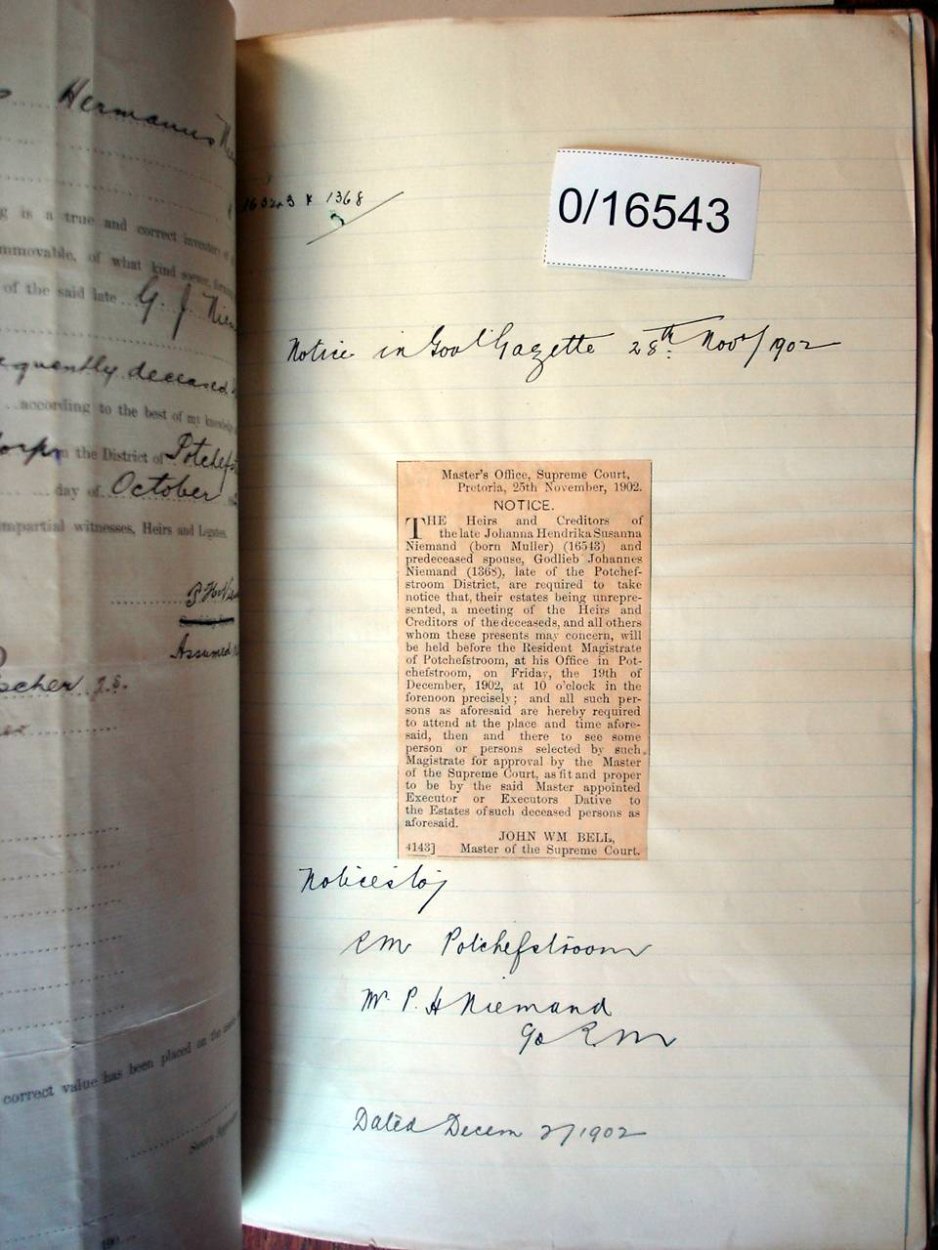 Hermanus
g is a true and correct
mmovable, of what kind
of the said late G. J.
equently deceased
according to the best of my
the District of
day of October
mpartial witnesses, Heirs and Legatees.
Assumed
scher J.S.
correct value has been placed on the
& 1368
0/16543
Notice in Govt Gazette 28th Novr/1902
Master's Office, Supreme Court,
Pretoria, 25th November, 1902.
NOTICE.
THE Heirs and Creditors of
the late Johanna Hendrika Susanna
Niemand (born Muller) (16543) and
predeceased spouse, Godlieb Johannes
Niemand (1368), late of the Potchef-
stroom District, are required to take
notice that, their estates being unrepre-
sented, a meeting of the Heirs and
Creditors of the deceaseds, and all others
whom these presents may concern, will
be held before the Resident Magistrate
of Potchefstroom, at his Office in Pot-
chefstroom, on Friday, the 19th of
December, 1902, at 10 o'clock in the
forenoon precisely; and all such per-
sons as aforesaid are hereby required
to attend at the place and time afore-
said, then and there to see some
person or persons selected by such
Magistrate for approval by the Master
of the Supreme Court, as fit and proper
to be by the said Master appointed
Executor or Executors Dative to
the Estates of such deceased persons as
aforesaid.
JOHN WM BELL,
4143] Master of the Supreme Court.
Notices to
RM Potchefstroom
Mr. P. H Niemand
c/o R. M
Dated Decem 2/1902